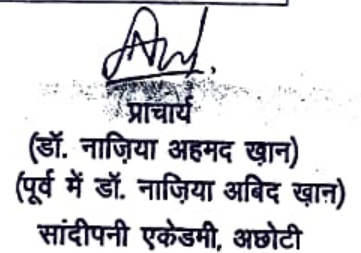 प्राचार्य
(डॉ. नाज़िया अहमद ख़ान)
(पूर्व में डॉ. नाज़िया अबिद ख़ान)
सांदीपनी एकेडमी, अछोटी